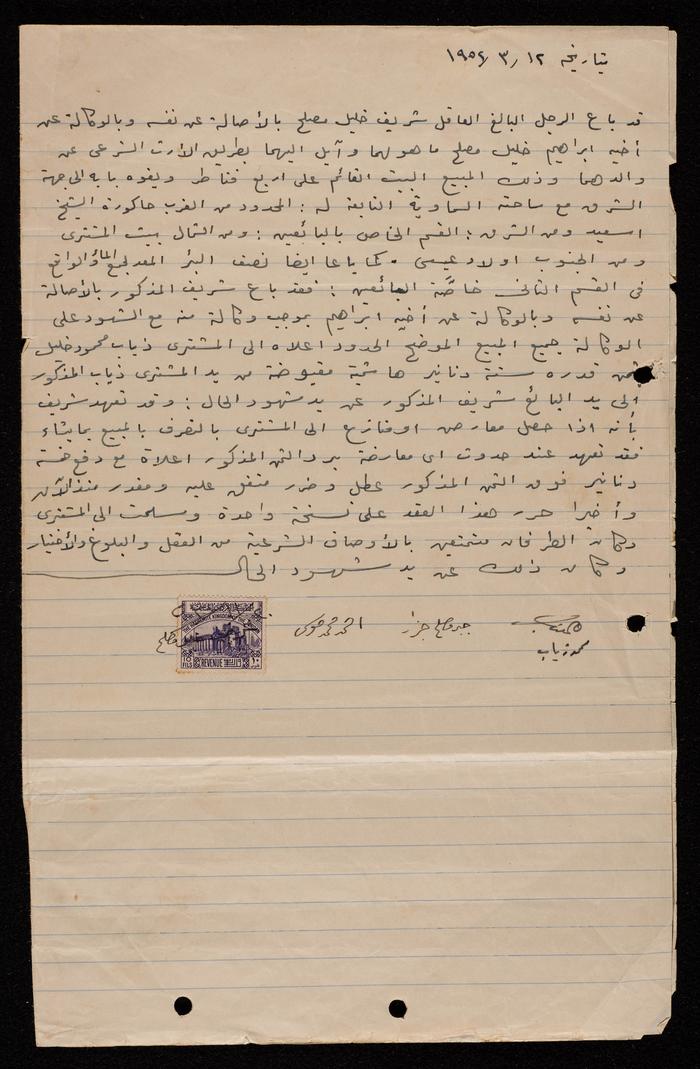 بتاريخ ١٢/ ٣/ ١٩٥٤
قد باع الرجل البالغ العاقل شريف خليل مصلح بالأصالة عن نفسه وبالوكالة عن
أخيه ابراهيم خليل مصلح ما هو لهما وآيل اليهما بطريق الأرث الشرعي عن
والدهما وذلك المبيع البيت القائم على اربع قناطر ونفوه بابه الى جهة
الشرق مع ساحته السماوية التابعة له : المحدود من الغرب حاكورة الشيخ
اسعيد ومن الشرق : القسم الخاص بالبائعين : ومن الشمال بيت المشتري
ومن الجنوب اولاد عيسى . كما باعا ايضا نصف البئر المعد لجمع الماء والواقع
في القسم الثاني خاصَّة البائعين : فقد باع شريف المذكور بالأصالة
عن نفسه وبالوكالة عن أخيه ابراهيم بموجب وكالة منه مع الشهود على
الوكالة جميع المبيع الموضح الحدود اعلاه الى المشتري ذياب محمود خليل
بثمن قدره ستة دنانير هاشمية مقبوضة من يد المشتري ذياب المذكور
الى يد البائع شريف المذكور عن يد شهود الحال : وقد تعهد شريف
بأنه اذا حصل معارض او منازع الى المشتري بالتصرف بالمبيع بما يشاء
فقد تعهد عند حدوث اي معارضة برد الثمن المذكور اعلاه مع دفع خمسة
دنانير فوق الثمن المذكور عطل وضرر متفق عليه ومقدر منذ الآن
وأخيرا حرر هذا العقد على نسخة واحدة وسلمت الى المشتري
وكان الطرفان متمتعين بالأوصاف الشرعية من العقل والبلوغ والأختيار
وكان ذلك عن يد شهود الحال
محمد ذياب
احمد محمد موسى
THE HASHEMITE KINGDOM OF
10 FILS
REVENUE
١٠